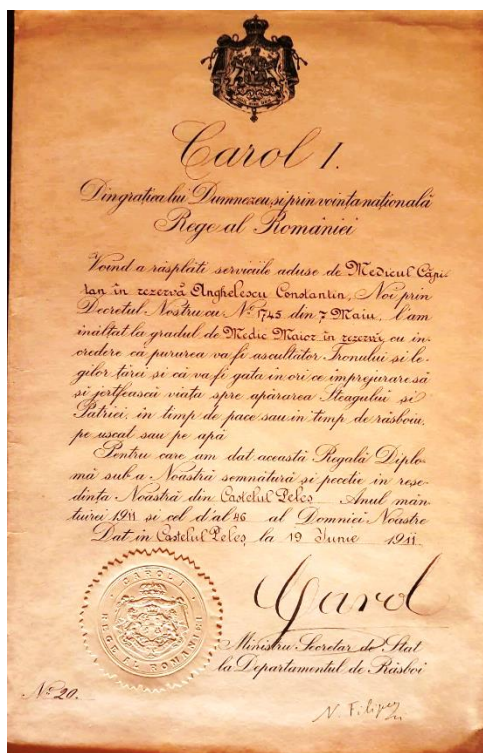 Carol I.
Din grația lui Dumnezeu și prin voința națională
Rege al României
Voind a răsplăti serviciile aduse de Medicul Căpi-
tan în rezervă Anghelescu Constantin, Noi prin
Decretul Nostru cu No. 1745 din 7 Maiu, l'am
inălțat la gradul de Medic Maior în rezervă cu in-
credere că pururea va fi ascultător Tronului și le-
gilor țărei și că va fi gata in ori ce imprejurare să
și jertfească viața spre apărarea Steagului și
Patriei, in timp de pace sau in timp de răsboiu,
pe uscat sau pe apă
Pentru care am dat această Regală Diplo-
mă sub a Noastră semnătură și pecetie in rese-
dința Noastră din Castelul Peleș Anul mân-
tuirei 1911 și cel d'al 46 al Domniei Noastre
Dat in Castelul Peleș la 19 Junie 1911
Carol
Ministru Secretar de Stat
la Departamentul de Răsboi
CAROL I
REGE AL ROMANIEI
No. 20.
N. Filipescu